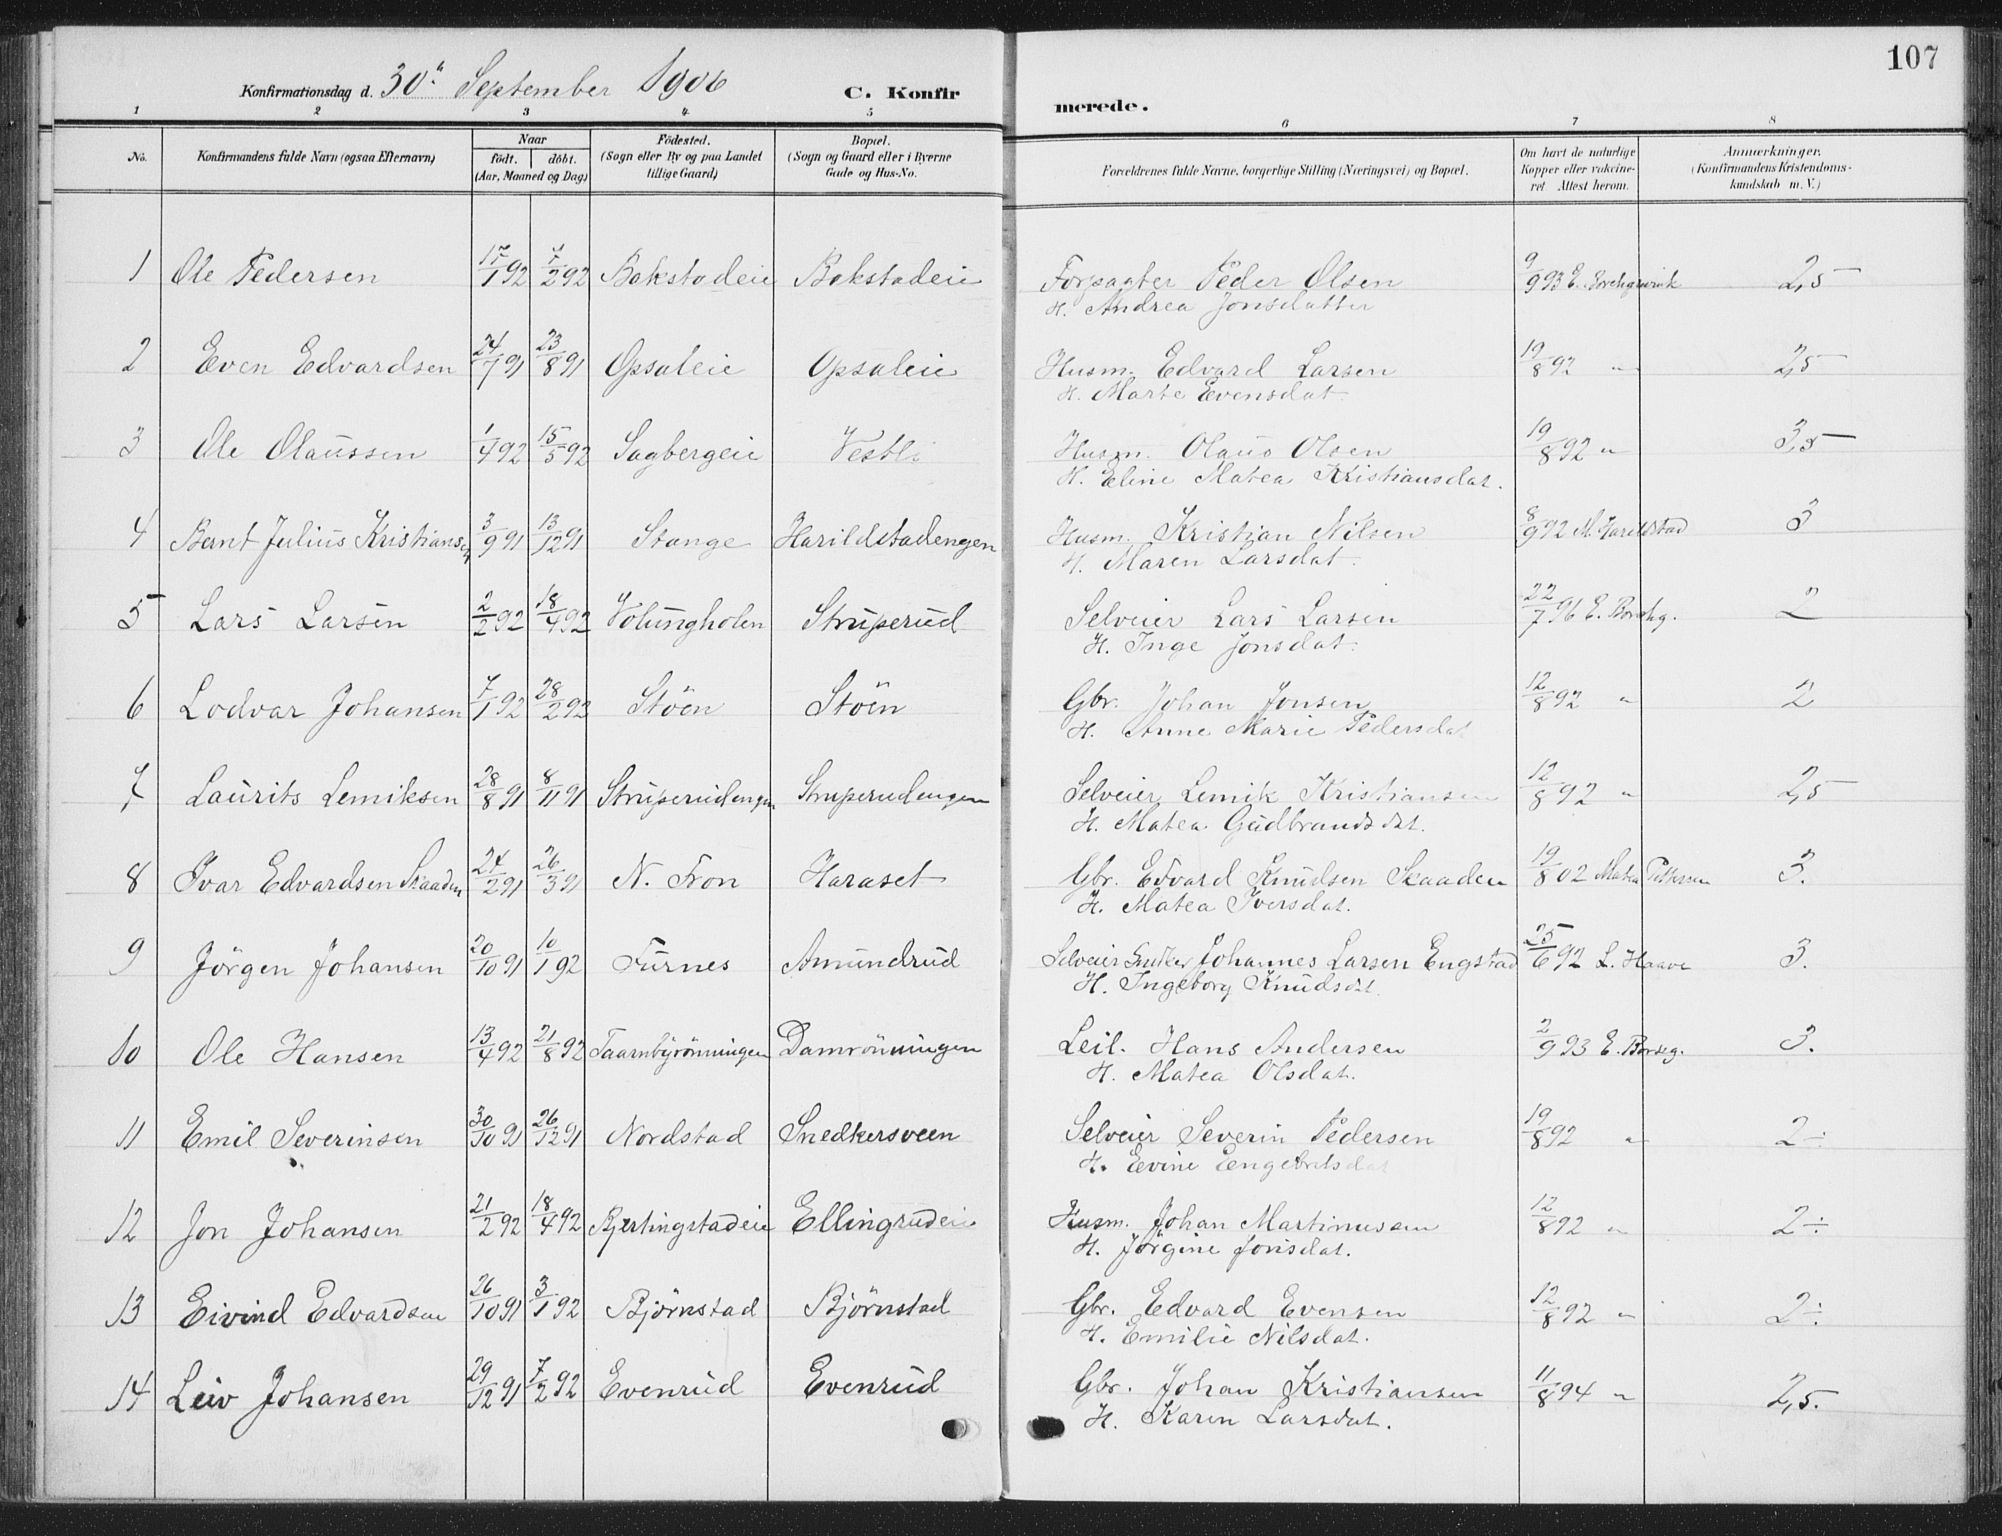 107
Konfirmationsdag d. 30te September 1906 C. Konfir merede.
1 2 3 4 5 6 7 8
No. Konfirmandens fulde Navn (ogsaa Efternavn) Naar födt. döbt. (Aar, Maaned og Dag) Födested. (Sogn eller By og paa Landet tillige Gaard) Bopæl. (Sogn og Gaard eller i Byerne Gade og Hus-No. Forældrenes fulde Navne, borgerlige Stilling (Næringsvei) og Bopæl. Om havt de naturlige Kopper eller vakcineret Attest herom. Anmærkninger. (Konfirmandens Kristendomskundskab m. V.)
1 Ole Pedersen 15/1 92 7/2 92 Bakstadeie Bakstadeie Forpagter Peder Olsen 9/9 93 E. Borchgrevink 2,5
H. Andrea Jonsdatter
2 Even Edvardsen 24/7 91 23/8 91 Opsaleie Opsaleie Husm. Edvard Larsen 19/8 92 " 2,5
H. Marte Evensdat.
3 Ole Olaussen 1/4 92 15/5 92 Sagbergeie Vestli Husm. Olaus Olsen 19/8 92 " 3,5
H. Eline Matea Kristiansdat.
4 Bernt Julius Kristiansen 3/9 91 13/12 91 Stange Harildstadengen Husm. Kristian Nilsen 8/9 92 M. Harildstad 3
H. Maren Larsdat.
5 Lars Larsen 2/2 92 18/4 92 Volungholen Struperud Selveier Lars Larsen 22/7 96 E. Borchg. 2
H. Inge Jonsdat.
6 Lodvar Johansen 7/1 92 28/2 92 Stöen Stöen Gbr. Johan Jonsen 12/8 92 " 2
H. Anne Marie Pedersdat
7 Laurits Lemiksen 28/8 91 8/11 91 Struperudengen Struperudengen Selveier Lemik Kristiansen 12/8 92 " 2,5
H. Matea Gudbrandsdat.
8 Ivar Edvardsen Skaaden 24/2 91 26/3 91 N. Fron Haraset Gbr. Edvard Knudsen Skaaden 19/8 02 Matea Pettersen 3.
H. Matea Iversdat.
9 Jörgen Johansen 20/10 91 10/1 92 Furnes Amundrud Selveier Snekker Johannes Larsen Engstad 25/6 92 L. Haave 3.
H. Ingeborg Knudsdt.
10 Ole Hansen 13/4 92 21/8 92 Taarnbyrönningen Damrönningen Leil. Hans Andersen 2/9 93 E. Borceg. 3.
H. Matea Olsdat.
11 Emil Severinsen 30/10 91 26/12 91 Nordstad Snedkersveen Selveier Severin Pedersen 19/8 92 " 2÷
H. Evine Engebretsdat
12 Jon Johansen 21/2 92 18/4 92 Bjerlingstadeie Ellingrudeie Husm. Johan Martinusen 12/8 92 " 2÷
H. Jörgine Jonsdat.
13 Eivind Edvardsen 26/10 91 3/1 92 Björnstad Björnstad Gbr. Edvard Evensen 12/8 92 " 2÷
H. Emilie Nilsdat.
14 Leiv Johansen 29/12 91 7/2 92 Evenrud Evenrud Gbr. Johan Kristiansen 11/8 94 " 2,5.
H. Karen Larsdat.